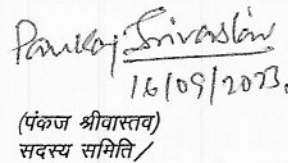 Pankaj Srivastav
16/09/2023.
(पंकज श्रीवास्तव)
सदस्य समिति/